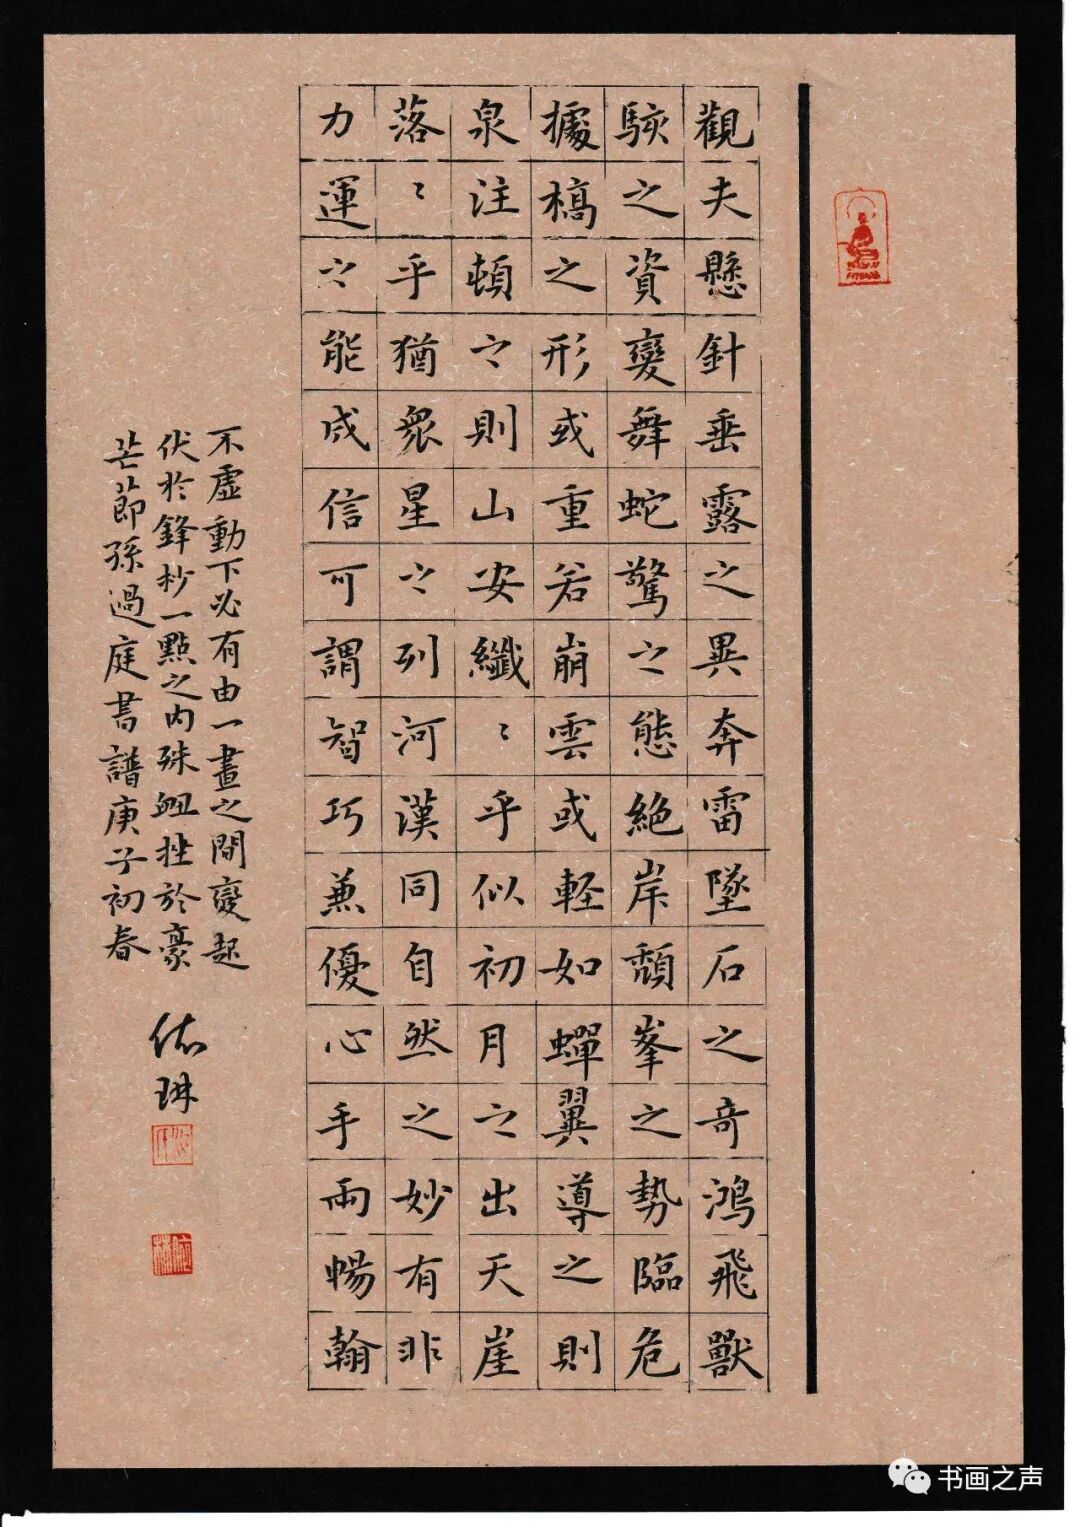 觀夫懸針垂露之異奔雷墜石之奇鴻飛獸
駭之資變舞蛇驚之態絕岸頹峯之勢臨危
據槁之形或重若崩雲或輕如蟬翼導之則
泉注頓之則山安纖〻乎似初月之出天崖
落〻乎猶眾星之列河漢同自然之妙有非
力運之能成信可謂智巧兼優心手兩暢翰
不虛動下必有由一畫之間變起
伏於鋒杪一點之內殊衄挫於豪
芒節孫過庭書譜庚子初春
琳
书画之声